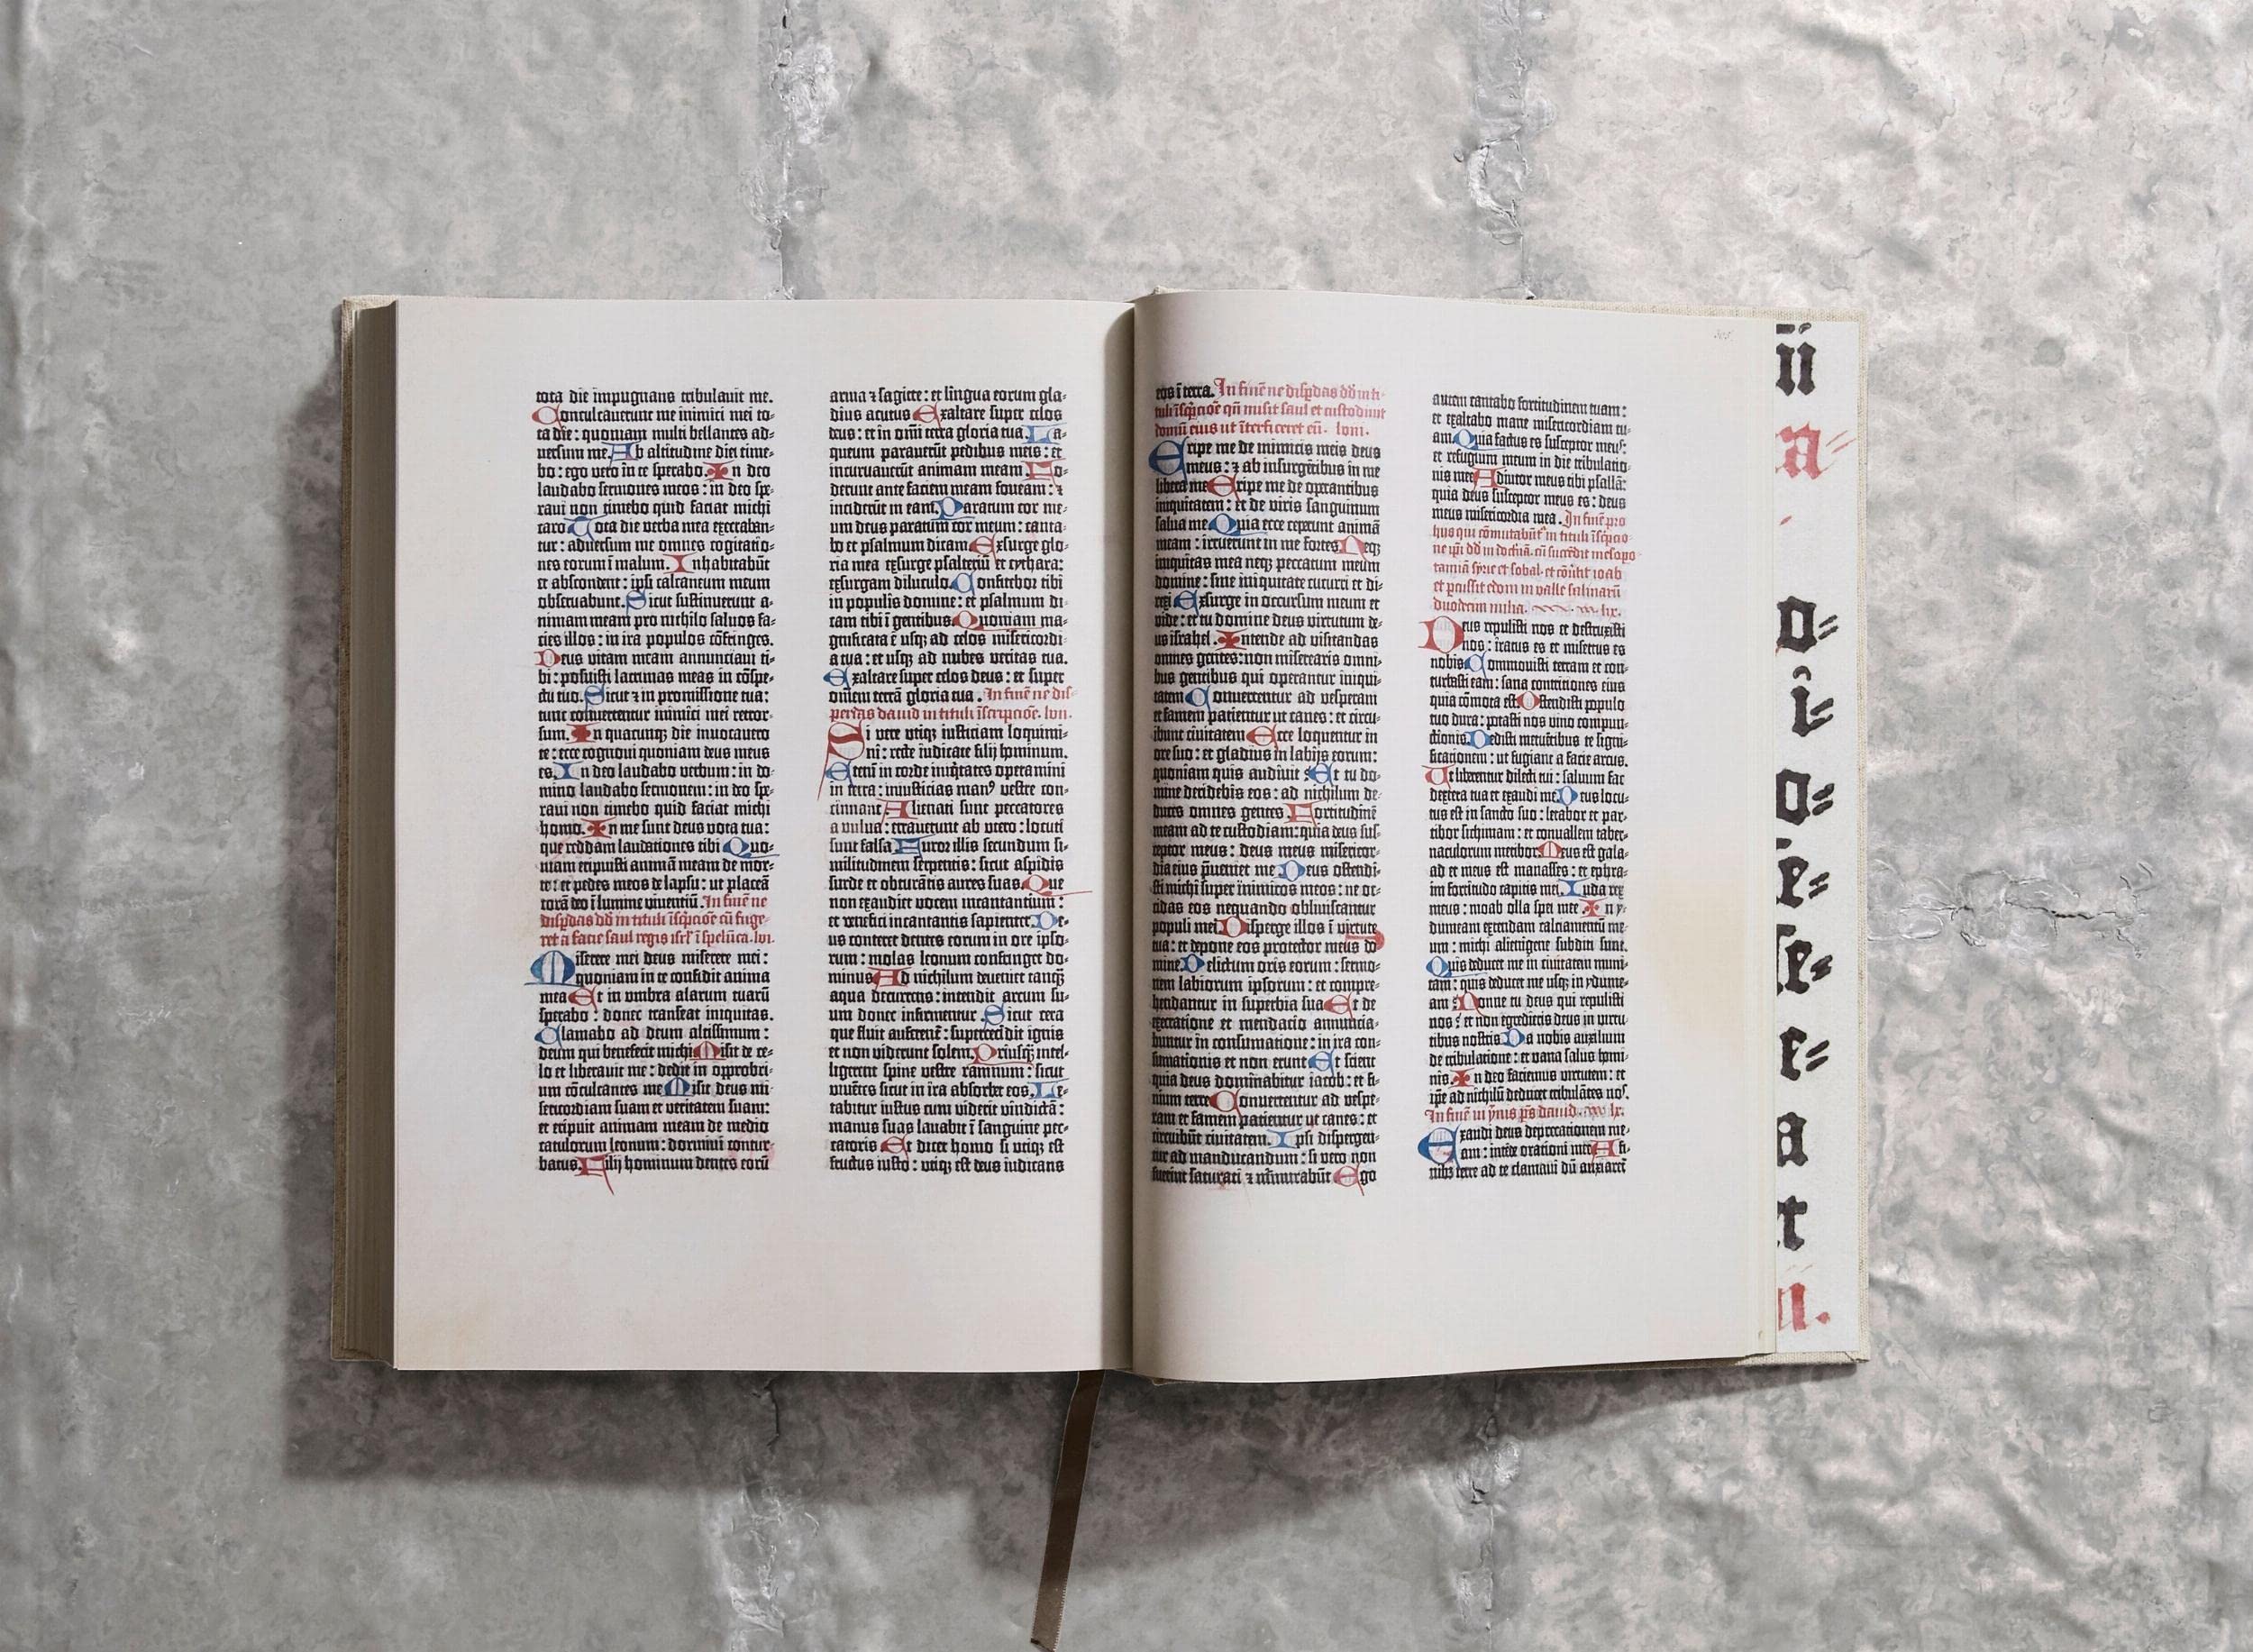 tota die impugnans tribulavit me.
Conculcaverunt me inimici mei to-
ta die: quoniam multi bellantes ad-
versum me. Ab altitudine diei time-
bo: ego vero in te sperabo. In deo
laudabo sermones meos: in deo spe-
ravi non timebo quid faciat michi
caro. Tota die verba mea execraban-
tur: adversum me omnes cogitatio-
nes eorum ī malum. Inhabitabūt
et abscondent: ipsi calcaneum meum
observabunt. Sicut sustinuerunt a-
nimam meam pro nichilo salvos fa-
cies illos: in ira populos cōfringes.
Deus vitam meam annunciavi ti-
bi: posuisti lacrimas meas in cōspe-
ctu tuo. Sicut ⁊ in promissione tua:
tunc convertentur inimici mei retror-
sum. In quacunqz die invocavero
te: ecce cognovi quoniam deus meus
es. In deo laudabo verbum: in do-
mino laudabo sermonem: in deo spe-
ravi non timebo quid faciat michi
homo. In me sunt deus vota tua:
que reddam laudationes tibi. Quo-
niam eripuisti animā meam de mor-
te: et pedes meos de lapsu: ut placeā
corā deo ī lumine viventiū. In finē ne
disperdas dd in tituli īscriptiōē cū fuge-
ret a facie saul regis isrl' ī spelūca. lvi.
Miserere mei deus miserere mei:
quoniam in te confidit anima
mea. Et in umbra alarum tuarū
sperabo: donec transeat iniquitas.
Clamabo ad deum altissimum:
deum qui benefecit michi. Misit de ce-
lo et liberavit me: dedit in opprobri-
um cōculcantes me. Misit deus mi-
sericordiam suam et veritatem suam:
et eripuit animam meam de medio
catulorum leonum: dormivi contur-
batus. Filij hominum dentes eorū
arma ⁊ sagitte: et lingua eorum gla-
dius acutus. Exaltare super celos
deus: et in omī terra gloria tua. La-
queum paraverūt pedibus meis: et
incurvaverūt animam meam. Fo-
derunt ante faciem meam foveam: ⁊
inciderūt in eam. Paratum cor me-
um deus paratum cor meum: canta-
bo et psalmum dicam. Exsurge glo-
ria mea exsurge psalteriū et cythara:
exsurgam diluculo. Confitebor tibi
in populis domine: et psalmum di-
cam tibi ī gentibus. Quoniam ma-
gnificata ē usqz ad celos misericordi-
a tua: et usqz ad nubes veritas tua.
Exaltare super celos deus: et super
omnem terrā gloria tua. In finē ne dis-
perdas david in tituli īscriptiōe. lvii.
Si vere utiqz iusticiam loquimi-
ni: recte iudicate filij hominum.
Etenī in corde iniqitates operamini
in terra: iniusticias man⁹ vestre con-
cinnant. Alienati sunt peccatores
a vulva: erraverunt ab utero: locuti
sunt falsa. Furor illis secundum si-
militudinem serpentis: sicut aspidis
surde et obturātis aures suas. Que
non exaudiet vocem incantantium:
et venefici incantantis sapienter. De-
us conteret dentes eorum in ore ipso-
rum: molas leonum confringet do-
minus. Ad nichilum devenient tanqz
aqua decurrens: intendit arcum su-
um donec infirmentur. Sicut cera
que fluit auferent: supercecidit ignis
et non viderunt solem. Priusqz intel-
ligerent spine vestre ramnum: sicut
viventes sicut in ira absorbet eos. Le-
tabitur iustus cum viderit vindictā:
manus suas lavabit ī sanguine pec-
catoris. Et dicet homo si utiqz est
fructus iusto: utiqz est deus iudicans
eos ī terra. In finē ne disperdas dd in ti-
tuli īscriptiōē qñ misit saul et custodiunt
domū eius ut īterficeret eū. lviii.
Eripe me de inimicis meis deus
meus: ⁊ ab insurgētibus in me
libera me. Eripe me de operantibus
iniquitatem: et de viris sanguinum
salva me. Quia ecce ceperunt animā
meam: irruerunt in me fortes. Neqz
iniquitas mea neqz peccatum meum
domine: sine iniquitate cucurri et di-
rexi. Exsurge in occursum meum et
vide: et tu domine deus virtutum de-
us israhel. Intende ad visitandas
omnes gentes: non miserearis omni-
bus gentibus qui operantur iniqui-
tatem. Convertentur ad vesperam
et famem patientur ut canes: et circu-
ibunt civitatem. Ecce loquentur in
ore suo: et gladius in labijs eorum:
quoniam quis audivit? Et tu do-
mine deridebis eos: ad nichilum de-
duces omnes gentes. Fortitudinē
meam ad te custodiam: quia deus sus-
ceptor meus: deus meus misericor-
dia eius pveniet me. Deus ostendi-
sti michi super inimicos meos: ne oc-
cidas eos nequando obliviscantur
populi mei. Disperge illos ī virtute
tua: et depone eos protector meus do-
mine. Delictum oris eorum: sermo-
nem labiorum ipsorum: et compre-
hendantur in superbia sua. Et de
execratione et mendacio annuncia-
buntur in consumatione: in ira con-
sumationis et non erunt. Et scient
quia deus dominabitur iacob: et fi-
nium terre. Convertentur ad vespe-
ram et famem patientur ut canes: et
circuibūt civitatem. Ipsi dispergen-
tur ad manducandum: si vero non
fuerint saturati ⁊ murmurabūt. Ego
autem cantabo fortitudinem tuam:
et exaltabo mane misericordiam tu-
am. Quia factus es susceptor meus:
et refugium meum in die tribulatio-
nis mee. Adiutor meus tibi psallā:
quia deus susceptor meus es: deus
meus misericordia mea. In finē pro
hijs qui cōmutabūt in tituli īscriptio
ne ipi dd in doctrinā. cū succēdit mesopo
tamiā syrie et sobal. et cōvtit ioab
et percussit edom in valle salinarū
duodecim milia. lix.
Deus repulisti nos et destruxisti
nos: iratus es et misertus es
nobis. Commovisti terram et con-
turbasti eam: sana contritiones eius
quia cōmota est. Ostendisti populo
tuo dura: potasti nos vino compun-
ctionis. Dedisti metuētibus te signi-
ficationem: ut fugiant a facie arcus.
Ut liberentur dilecti tui: salvum fac
dextera tua et exaudi me. Deus locu-
tus est in sancto suo: letabor et par-
tibor sichimam: et convallem taber-
naculorum metibor. Meus est gala-
ad et meus est manasses: et ephra-
im fortitudo capitis mei. Iuda rex
meus: moab olla spei mee. In y-
dumeam extendam calciamentū me-
um: michi alienigene subditi sunt.
Quis deducet me in civitatem muni-
tam: quis deducet me usqz in ydume-
am? Nonne tu deus qui repulisti
nos? et non egredieris deus in virtu-
tibus nostris. Da nobis auxilium
de tribulatione: et vana salus homi-
nis. In deo faciemus virtutem: et
ipē ad nichilū deducet tribulātes nos.
In finē in ymnis ps david. lx.
Exaudi deus deprecationem me-
am: intēde orationi mee. A fi-
nibz terre ad te clamavi dū anxiaret
ii
a
.
o=
i=
o=
e=
se=
e=
a
t
n.